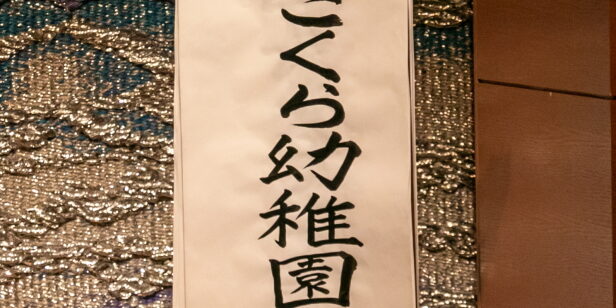 こくら幼稚園